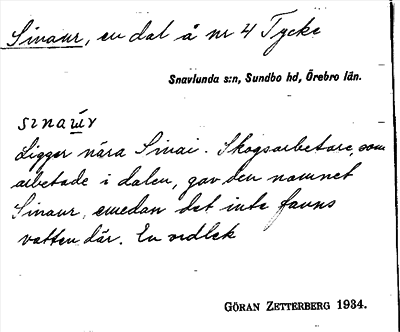 Sinaur, en dal å nr 4 Tycke
Snavlunda s:n, Sundbo hd, Örebro län.
sınaú̲r
Ligger nära Sinai. Skogsarbetare, som
arbetade i dalen, gav den namnet
Sinaur, emedan det inte fanns
vatten där. En ordlek
GÖRAN ZETTERBERG 1934.